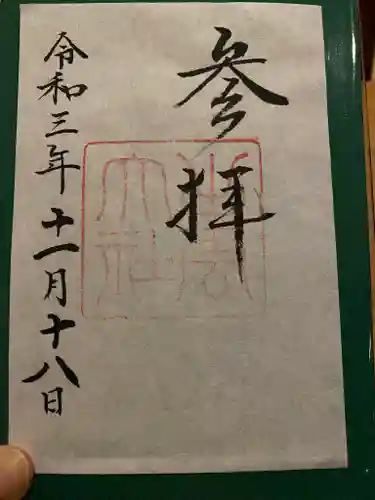 参拝
令和三年十一月十八日